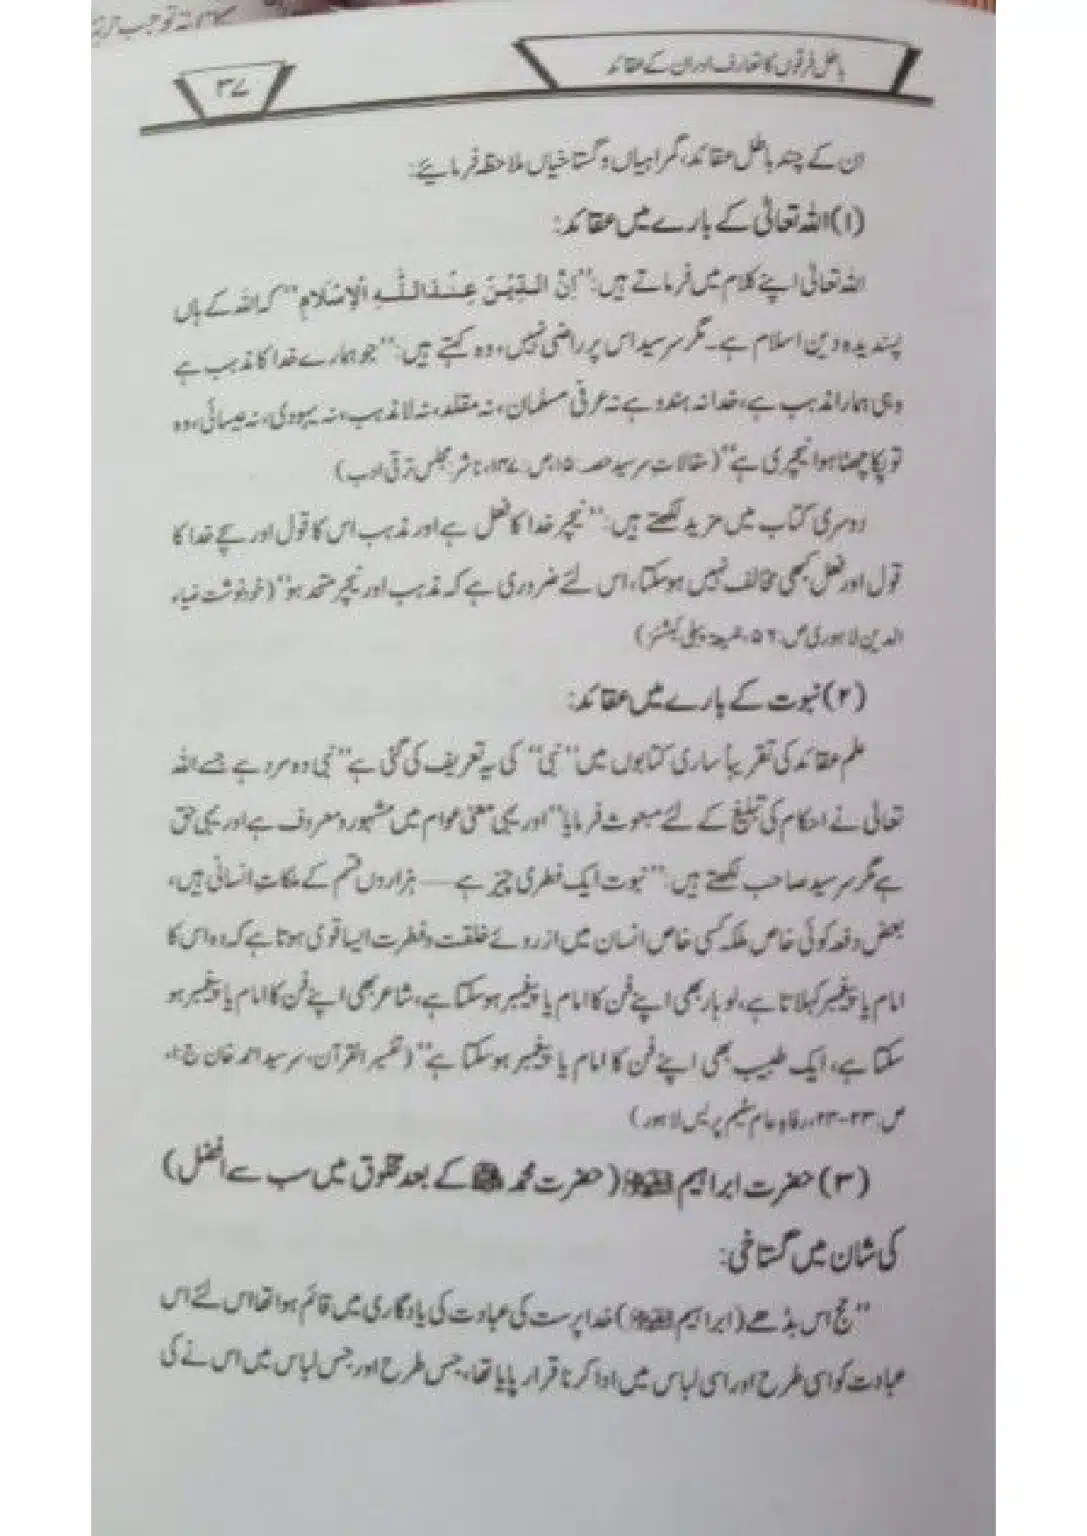 باطل فرقوں کا تعارف اور ان کے عقائد
۳۷
ان کے چند باطل عقائد، گمراہیاں و گستاخیاں ملاحظہ فرمایئے:
(۱) اللہ تعالیٰ کے بارے میں عقائد:
اللہ تعالیٰ اپنے کلام میں فرماتے ہیں: ”اِنَّ الدِّیْنَ عِنْدَ اللّٰہِ الْاِسْلَامُ“ کہ اللہ کے ہاں
پسندیدہ دین اسلام ہے۔ مگر سرسید اس پر راضی نہیں، وہ کہتے ہیں: ”جو ہمارے خدا کا مذہب ہے
وہی ہمارا مذہب ہے، خدا نہ ہندو ہے نہ عرفی مسلمان، نہ مقلد، نہ لامذہب، نہ یہودی، نہ عیسائی، وہ
تو پکا چھٹا ہوا نیچری ہے“ (مقالات سرسید حصہ: ۱۵، ص: ۱۴۷، ناشر: مجلس ترقی ادب)
دوسری کتاب میں مزید لکھتے ہیں: ”نیچر خدا کا فعل ہے اور مذہب اس کا قول اور سچے خدا کا
قول اور فعل کبھی مخالف نہیں ہوسکتا، اس لئے ضروری ہے کہ مذہب اور نیچر متحد ہو“ (خود نوشت ضیاء
الدین لاہوری ص: ۵۶، جمعیۃ پبلی کیشنز)
(۲) نبوت کے بارے میں عقائد:
علم عقائد کی تقریباً ساری کتابوں میں ”نبی“ کی یہ تعریف کی گئی ہے ”نبی وہ مرد ہے جسے اللہ
تعالیٰ نے احکام کی تبلیغ کے لئے مبعوث فرمایا“ اور یہی معنی عوام میں مشہور و معروف ہے اور یہی حق
ہے مگر سرسید صاحب لکھتے ہیں: ”نبوت ایک فطری چیز ہے — ہزاروں قسم کے ملکات انسانی ہیں،
بعض دفعہ کوئی خاص ملکہ کسی خاص انسان میں از روئے خلقت و فطرت ایسا قوی ہوتا ہے کہ وہ اس کا
امام یا پیغمبر کہلاتا ہے، لوہار بھی اپنے فن کا امام یا پیغمبر ہوسکتا ہے، شاعر بھی اپنے فن کا امام یا پیغمبر ہو
سکتا ہے، ایک طبیب بھی اپنے فن کا امام یا پیغمبر ہوسکتا ہے“ (تفسیر القرآن، سرسید احمد خان ج: ۱،
ص: ۲۳-۲۴، رفاہ عام سٹیم پریس لاہور)
(۳) حضرت ابراہیم (حضرت محمد ﷺ کے بعد مخلوق میں سب سے افضل)
کی شان میں گستاخی:
”حج اس بڈھے (ابراہیم) خدا پرست کی عبادت کی یادگاری میں قائم ہوا تھا اس لئے اس
عبادت کو اسی طرح اور اسی لباس میں ادا کرنا قرار پایا تھا، جس طرح اور جس لباس میں اس نے کی